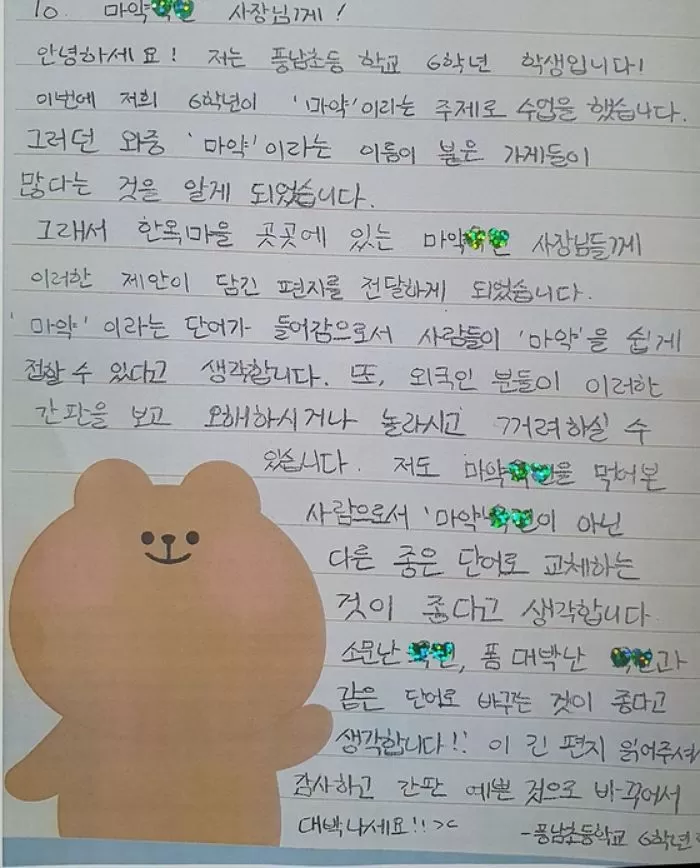 To. 마약 사장님께!
안녕하세요! 저는 풍남초등 학교 6학년 학생입니다!
이번에 저희 6학년이 '마약'이라는 주제로 수업을 했습니다.
그러던 와중 '마약'이라는 이름이 붙은 가게들이
많다는 것을 알게 되었습니다.
그래서 한옥마을 곳곳에 있는 마약 사장님들께
이러한 제안이 담긴 편지를 전달하게 되었습니다.
'마약'이라는 단어가 들어감으로서 사람들이 '마약'을 쉽게
접할 수 있다고 생각합니다. 또, 외국인 분들이 이러한
간판을 보고 오해하시거나 놀라시고 꺼려하실 수
있습니다. 저도 마약을 먹어본
사람으로서 '마약이 아닌
다른 좋은 단어로 교체하는
것이 좋다고 생각합니다
소문난, 퐁 대박난 과
같은 단어로 바꾸는 것이 좋다고
생각합니다!! 이 긴 편지 읽어주셔
감사하고 간판 예쁜 것으로 바꾸어서
대박나세요!! ><
-풍남초등학교 6학년